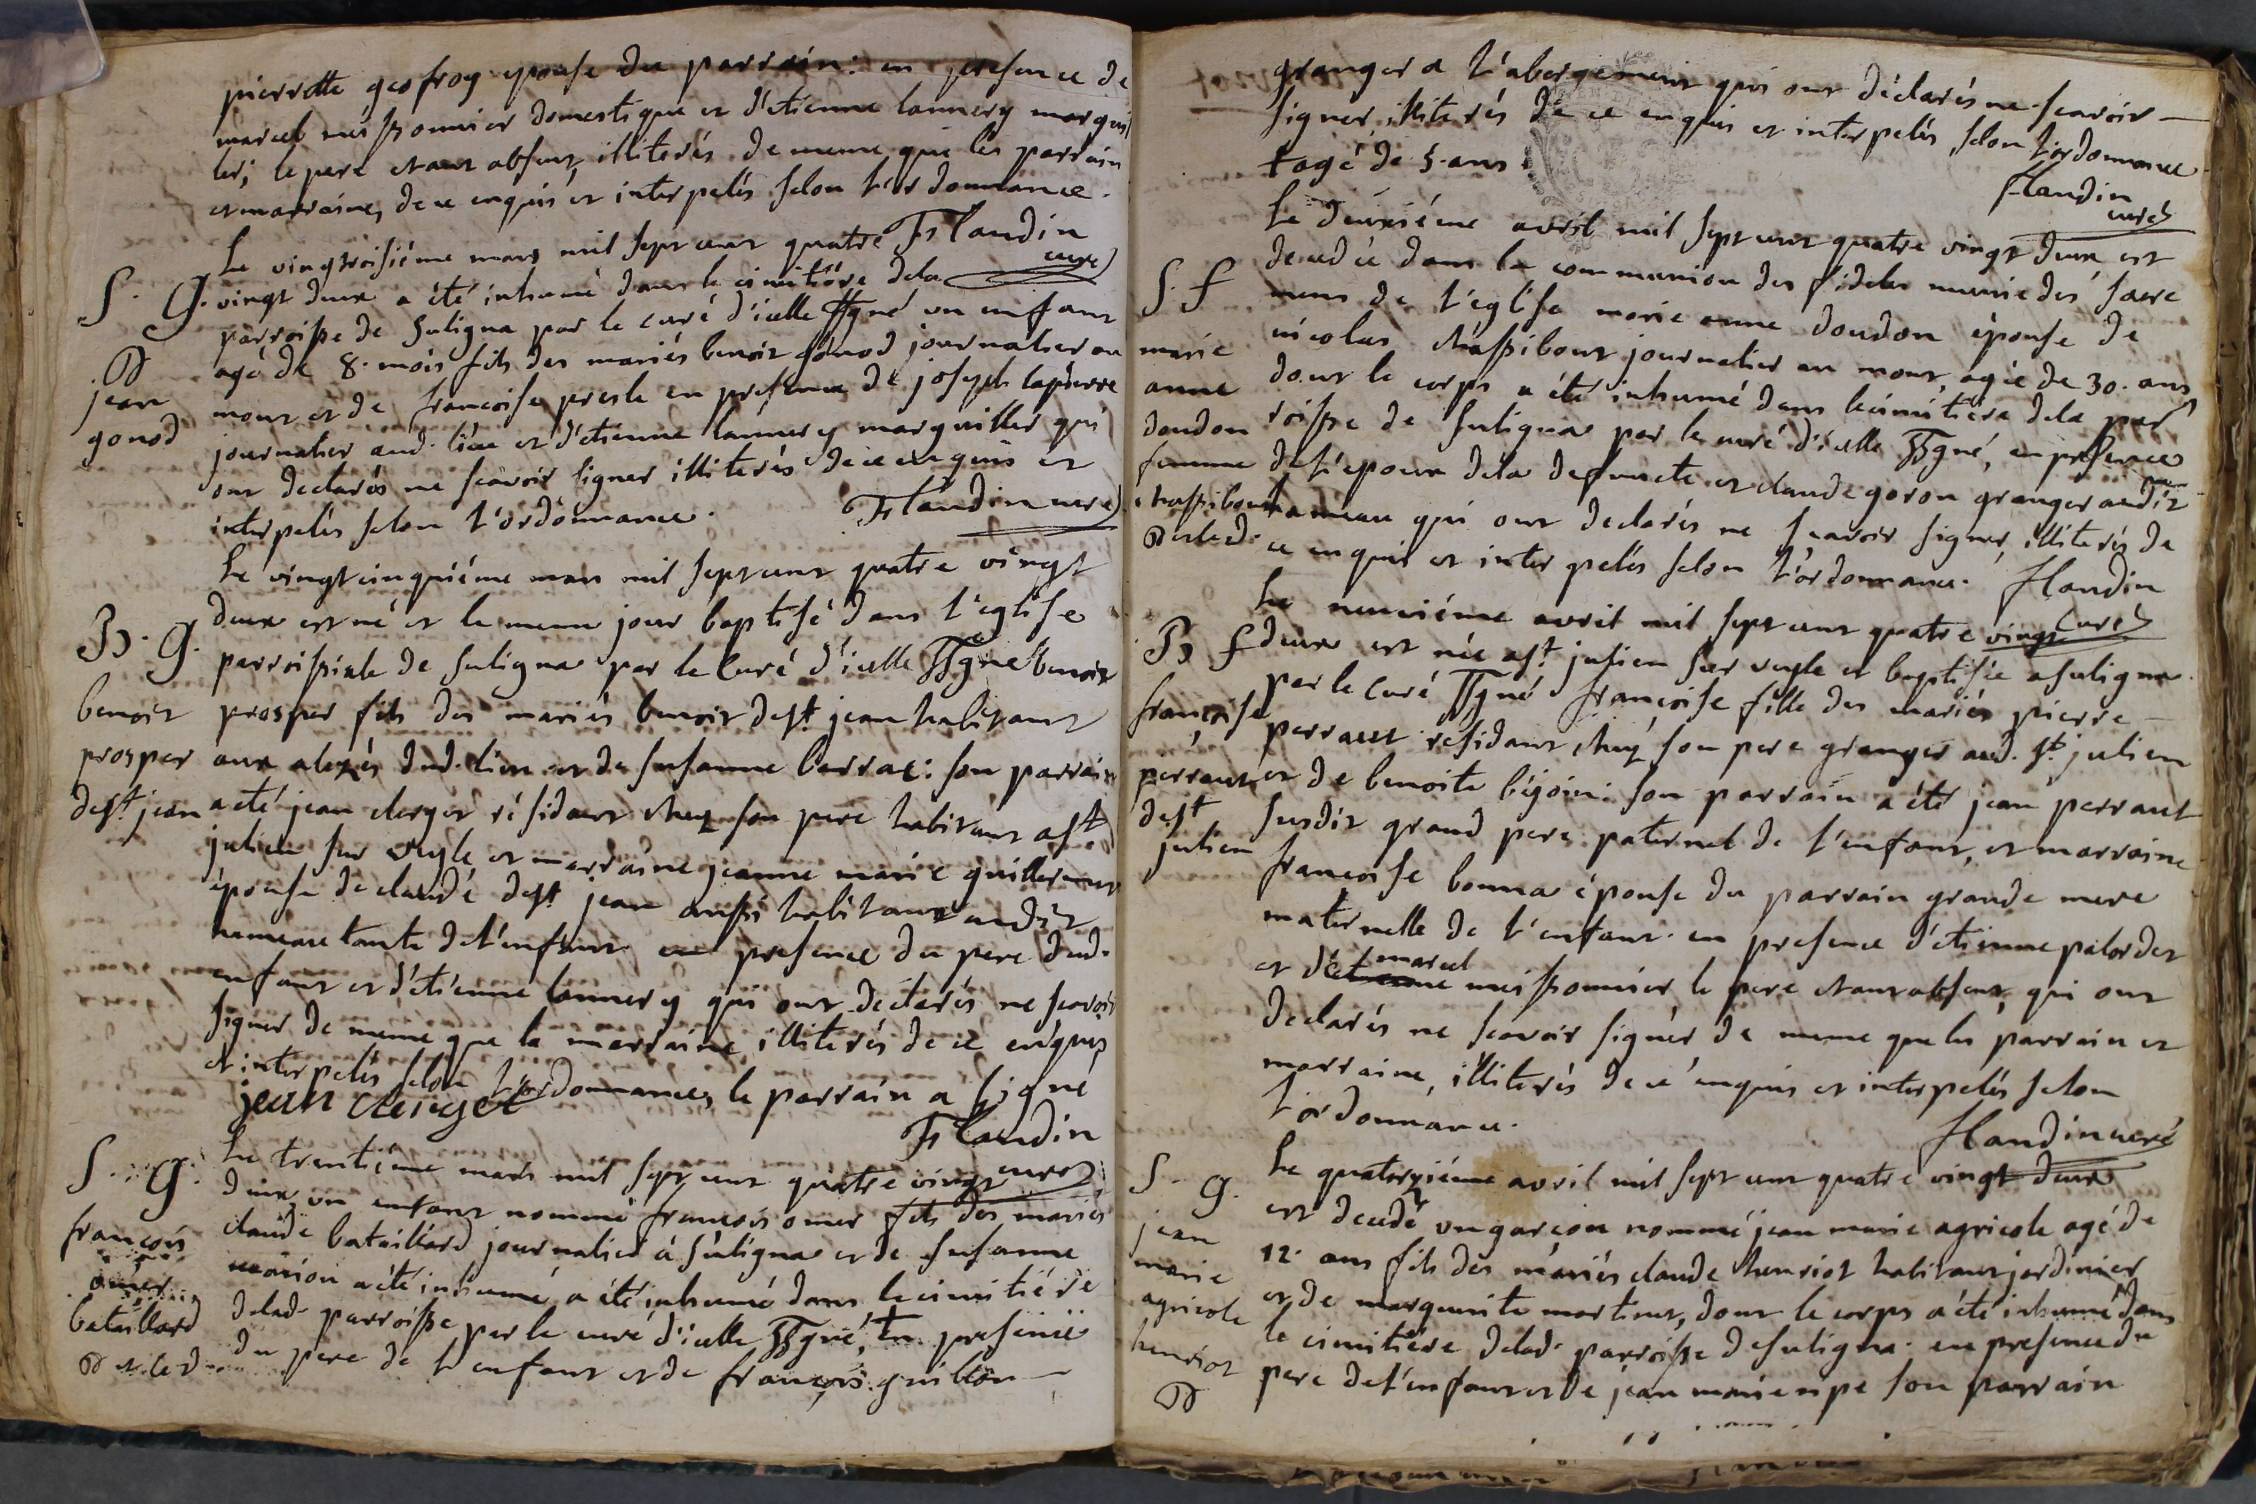 pierrette geofroy epouse du parrain: en presence de
marcel meissonnier domestique et d'etienne lannery marguil
ler, le pere etant absent, illiterés de meme que les parrain
et marraine, de ce enquis et interpelés selon l'ordonnance.
Flandin
curé
Le vingtroisiéme mars mil sept cent quatre
S. G. vingt deux a été inhumé dans le cimitiére dela
parroisse de Suligna par le curé d'icelle ssgné un enfant
agé de 8. mois fils des mariés benoit gonod journalier au
D
jean
gonod
mont et de francoise presle en presence de joseph lapierre
journalier aud. lieu et d'etienne lannery marguiller qui
ont declarés ne scavoir signer illiterés de ce enquis et
interpelés selon l'ordonnance. Flandin curé
Le vingt cinquiéme mars mil sept cent quatre vingt
B. G. deux est né et le meme jour baptisé dans l'eglise
parroissiale de suligna par le Curé d'icelle ssgné benoit
benoit prosper fils des mariés benoit dest jean habitant
prosper aux alezés dud. lieu et de susanne barrac: son parrain
dest jean a été jean clerget résidant chez son pere habitant a st
julien sur veyle et marraine jeanne marie guillermet
épouse de claude dest jean aussi habitant audit
hameau tante de l'enfant en presence du pere dud.
enfant et d'etienne lannery qui ont declarés ne scavoir
signer de meme que la marraine, illiterés de ce enquis
et interpelés selon l'ordonnance, le parrain a signé
jean clerget
Flandin
curé
S. G. Le trentiéme mars mil sept cent quatre vingt
deux, un enfant nommé francois omer fils des mariés
francois claude bataillard journalier à Suligna et de susanne
omer marion a été inhumé, a été inhumé dans le cimitiére
bataillard delad. parroisse par le curé d'icelle ssgné, En presence
D et led. du pere de l'enfant et de françois guillon
granger a l'abergement qui ont déclarés ne scavoir
signer, illiterés de ce enquis et interpelés selon l'ordonnance
† agé de 5. ans
Flandin
curé
Le deuxiéme avril mil sept cent quatre vingt deux est
S. f decedée dans la communion des fideles munie des sacre
mens de l'eglise marie anne doudon épouse de
marie nicolas chassibout journalier au mont, agée de 30. ans
anne dont le corps a été inhumé dans le cimitiére dela par
doudon roisse de suligna par le curé d'icelle ssgné, en presence
femme de l'epoux dela defuncte et claude goron granger audit
chassibout hameau qui ont declarés ne scavoir signer, illiterés de
D et led. ce enquis et inter pelés selon l'ordonnance. Flandin
Curé
Le neuviéme avril mil sept cent quatre vingt
B f deux est née a st julien sur veyle et baptisée a suligna
par le Curé ssgné françoise fille des mariés pierre
françoise perraut résidant chez son pere granger aud. st julien
perraut et de benoite béjoin: son parrain a été jean perraut
dest susdit grand pere paternel de l'enfant, et marraine
julien francoise bonna épouse du parrain grande mere
maternelle de l'enfant. en presence d'etienne palordet
et marcel meissonnier, le pere etant absent, qui ont
declarés ne scavoir signer, de meme que les parrain et
marraine, illiterés de ce enquis et interpelés selon
l'ordonnance.
Flandin curé
S. G. Le quatorziéme avril mil sept cent quatre vingt deux
est decedé un garcon nommé jean marie agricole agé de
jean 12. ans fils des mariés claude henriot habitant jardinier
marie et de marguerite martinet, dont le corps a été inhumé dans
agricole le cimitiére delad. parroisse de suligna. en presence du
henriot pere de l'enfant et de jean marie npe son parrain
D